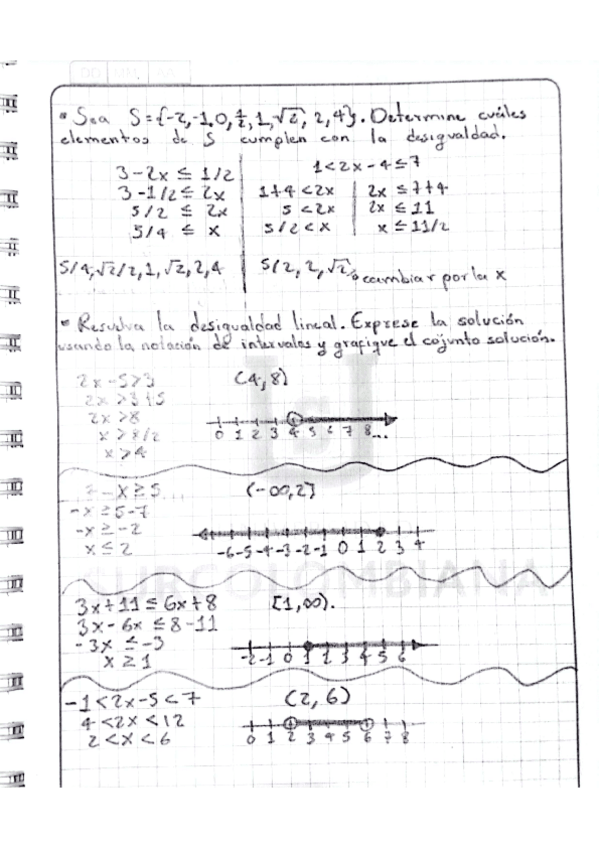 DD MM AA
• Sea S={-2,-1,0,1/2,1,√2,2,4}. Determine cuáles
elementos de S cumplen con la desigualdad.
3-2x ≤ 1/2
3-1/2 ≤ 2x
5/2 ≤ 2x
5/4 ≤ x
5/4,√2/2,1,√2,2,4
1<2x-4≤7
1+4<2x
5<2x
5/2<x
2x≤7+4
2x≤11
x≤11/2
5/2,2,√2
cambiar por la x
• Resuelva la desigualdad lineal. Exprese la solución
usando la notación de intervalos y grafique el cojunto solución.
2x-5>3
2x>3+5
2x>8
x>8/2
x>4
(4,8)
0 1 2 3 4 5 6 7 8...
-x≥5
-x≥5-7
-x≥-2
x≤2
(-∞,2]
-6-5-4-3-2-1 0 1 2 3 4
SURCOLOMBIANA
3x+11≤6x+8
3x-6x≤8-11
-3x≤-3
x≥1
[1,∞).
-2-1 0 1 2 3 4 5 6
-1<2x-5<7
4<2x<12
2<x<6
(2,6)
0 1 2 3 4 5 6 7 8